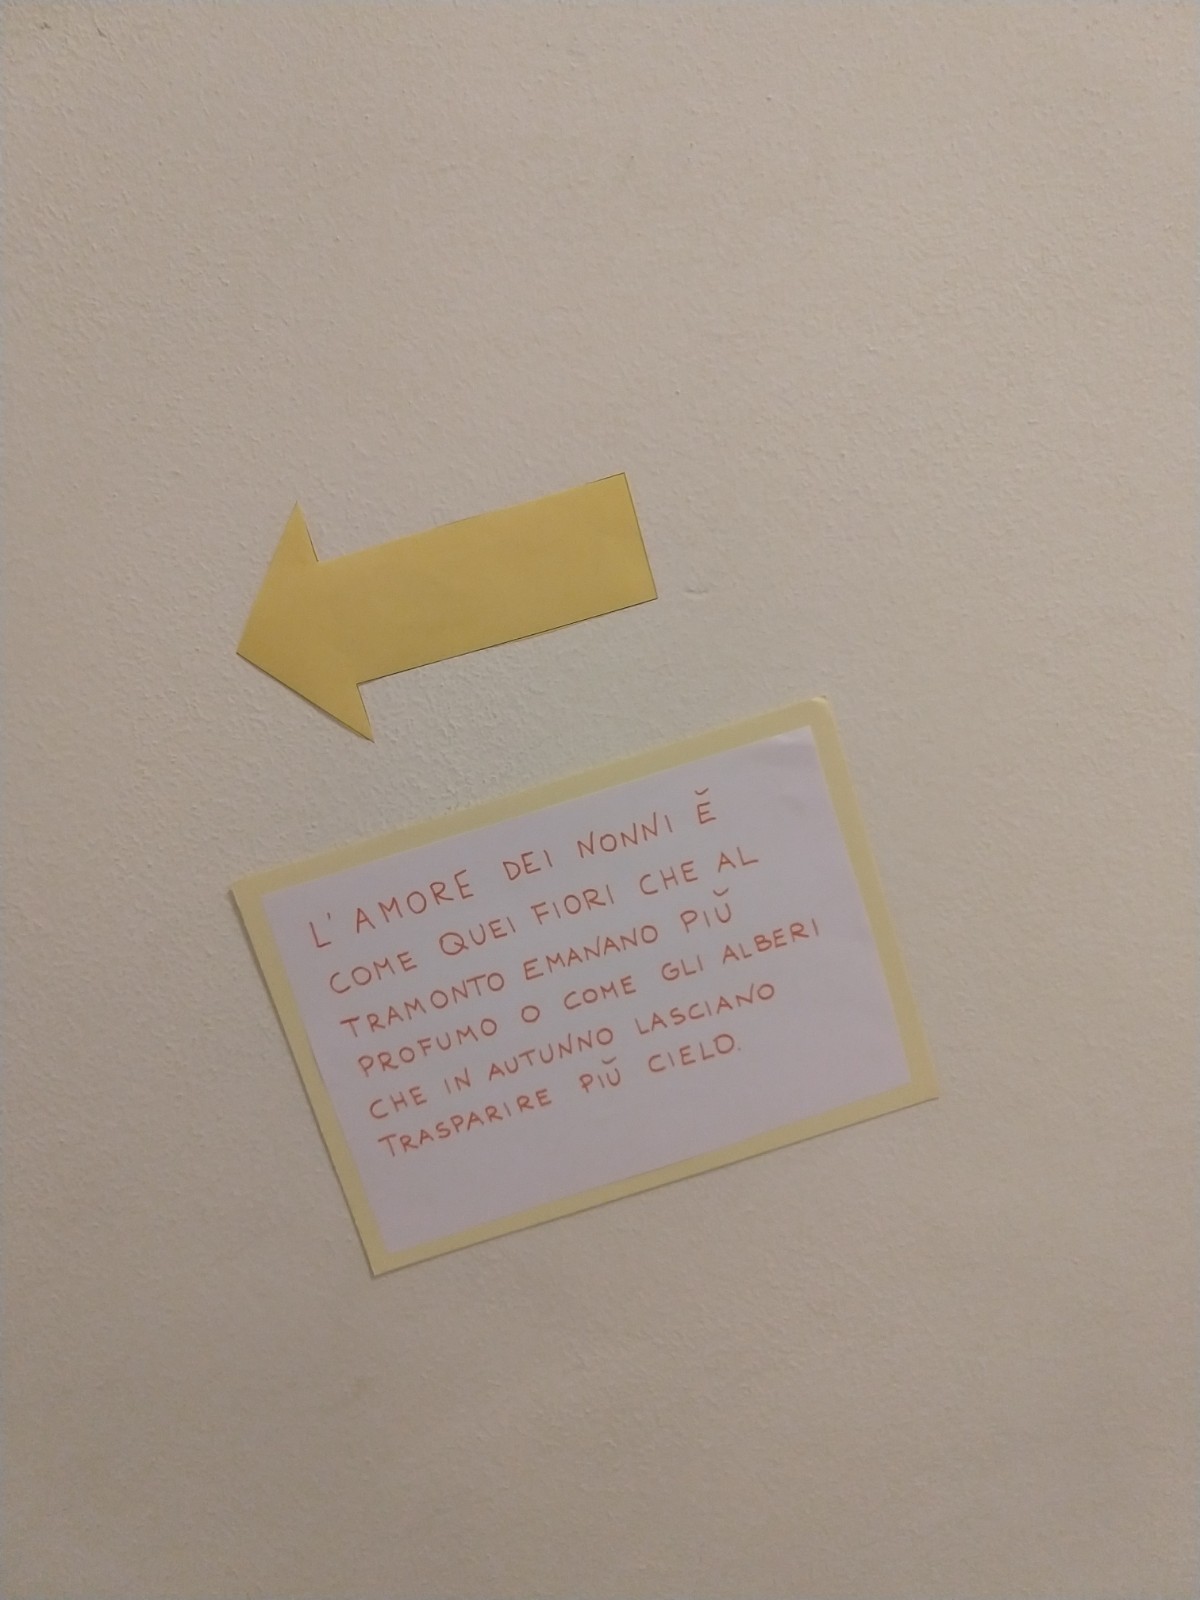 L'AMORE DEI NONNI Ĕ
COME QUEI FIORI CHE AL
TRAMONTO EMANANO PIŬ
PROFUMO O COME GLI ALBERI
CHE IN AUTUNNO LASCIANO
TRASPARIRE PIŬ CIELO.